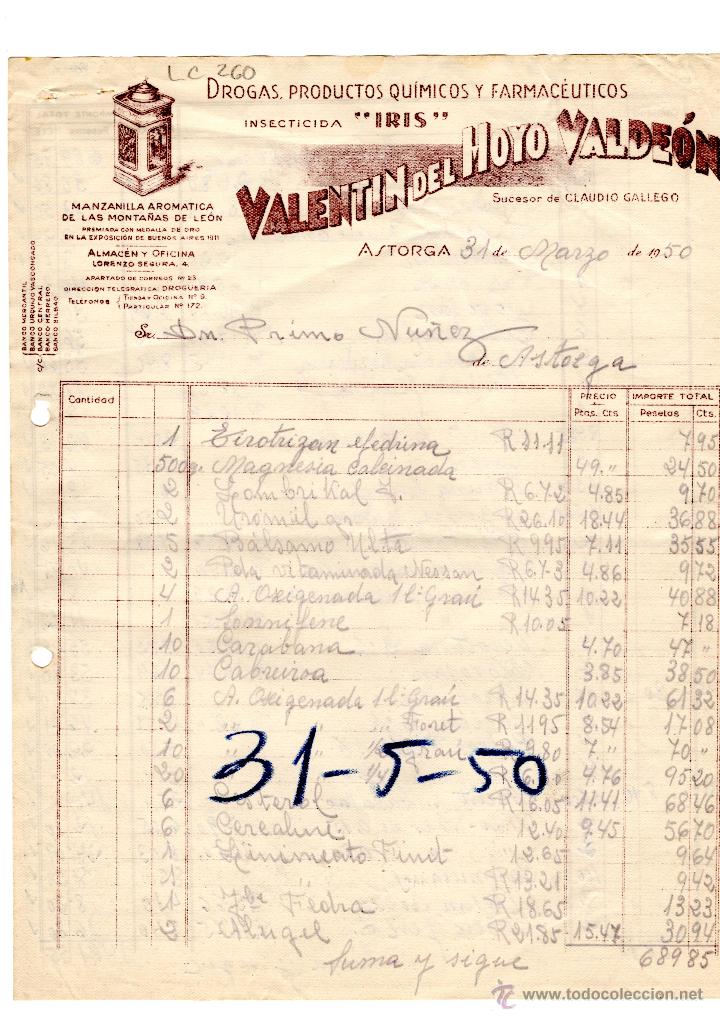 LC 260
DROGAS, PRODUCTOS QUÍMICOS Y FARMACÉUTICOS
INSECTICIDA "IRIS"
VALENTIN DEL HOYO VALDEÓN
Sucesor de CLAUDIO GALLEGO
MANZANILLA AROMATICA
DE LAS MONTAÑAS DE LEÓN
PREMIADA CON MEDALLA DE ORO
EN LA EXPOSICIÓN DE BUENOS AIRES 1911
ALMACÉN Y OFICINA
LORENZO SEGURA, 4.
APARTADO DE CORREOS Nº 23
DIRECCIÓN TELEGRÁFICA: DROGUERIA
TELÉFONOS { TIENDA Y OFICINA Nº 9.
PARTICULAR Nº 172.
C/C. BANCO MERCANTIL
BANCO URQUIJO VASCONGADO
BANCO CENTRAL
BANCO HERRERO
BANCO BILBAO
ASTORGA 31 de Marzo de 1950
Sr. Dn. Primo Nuñez
de Astorga
Cantidad PRECIO IMPORTE TOTAL
Ptas. Cts Pesetas Cts.
1 efedrina R 11.11 7 95
500 gr. Magnesia calcinada 49 " 24 50
2 R 6.72 4.85 9.70
2 Uromil gr R 26.10 18.44 36 88
5 Bálsamo Ulta R 9.95 7.11 35 55
2 vitaminada Nessan R 6.73 4.86 9 72
4 A. Oxigenada 1 l. Graú R 14.35 10.22 40 88
1 R 10.05 7 18
10 Carabana 4.70 47 "
10 Cabreiroa 3.85 38 50
6 A. Oxigenada 1 l. Graú R 14.35 10.22 61 32
2 " " Foret R 11.95 8.54 17 08
10 " " 1/2 Graú 9.80 7. " 70 "
20 1/4 4.76 95 20
6 R 16.05 11.41 68 46
6 12.40 9.45 56 70
1 Linimento " 12.65 9 64
1 R 13.21 9 42
1 Fedra R 18.65 13 23
2 R 21.85 15.47 30 94
Suma y sigue 689 85
31-5-50
www.todocoleccion.net